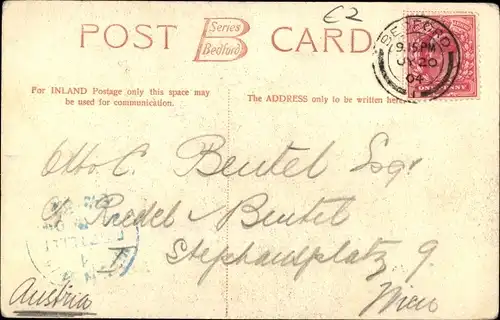 £2
POST Series Bedford CARD
BEDFORD
9.15 PM
JY 26
04
ONE PENNY
For INLAND Postage only this space may
be used for communication.
The ADDRESS only to be written here
Otto C. Beutel Esqr
c/o Riedel & Beutel
Stephansplatz 9.
Wien
Austria